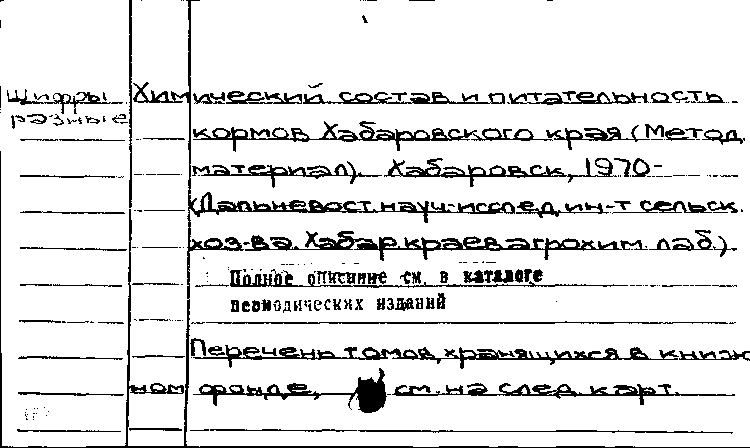 Шифры
разные
Химический состав и питательность
кормов Хабаровского края (Метод.
материал). Хабаровск, 1970-
(Дальневост. науч.-исслед. ин-т сельск.
хоз-ва. Хабар. краев. агрохим. лаб.).
Полное описание см. в каталоге
периодических изданий
Перечень томов, хранящихся в книж
ном фонде, см. на след. карт.